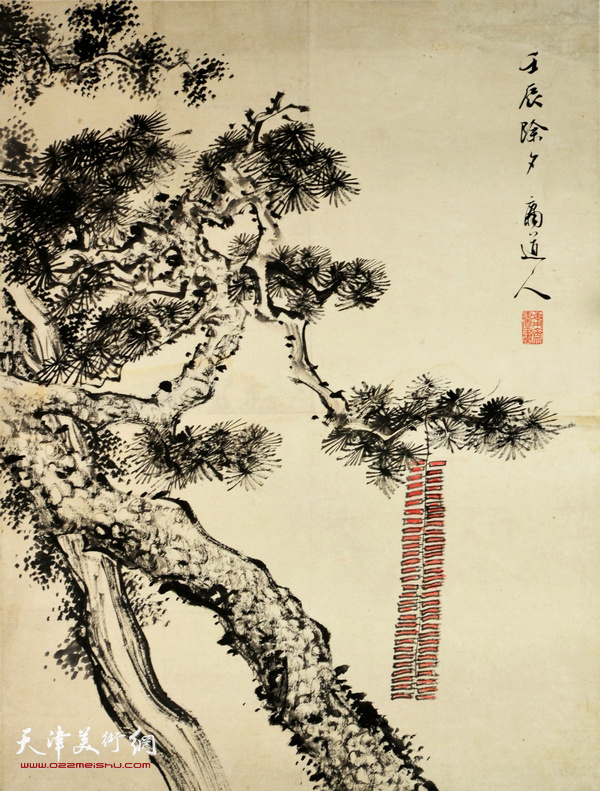 壬辰除夕 []道人
天津美術網
www.022meishu.com